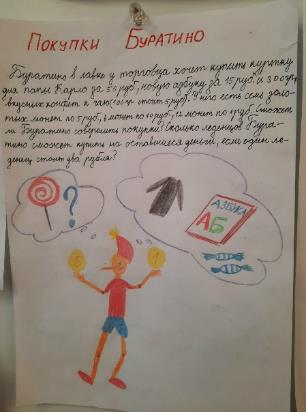 Покупки Буратино
Буратино в лавке у торговца хочет купить куртку
для папы Карло за 50 руб, новую азбуку за 15 руб. и 300 гр.
вкусных конфет к чаю (100 гр. стоит 5 руб). У него есть семь золо-
тых монет по 5 руб, 3 монет по 10 руб, 12 монет по 1 руб. Сможет
ли Буратино совершить покупки? Сколько леденцов Бура-
тино сможет купить на оставшиеся деньги, если один ле-
денец стоит два рубля?
?
АЗБУКА
АБ
5
1